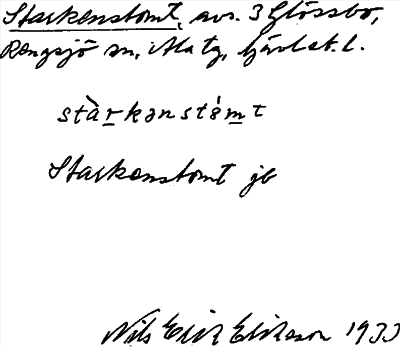 Starkenstomt, avs. 3 Glössbo,
Rengsjö sn, Ala tg, Gävleb. l.
stàrkənstómt
Starkenstomt jb
Nils Erik Erikson 1933